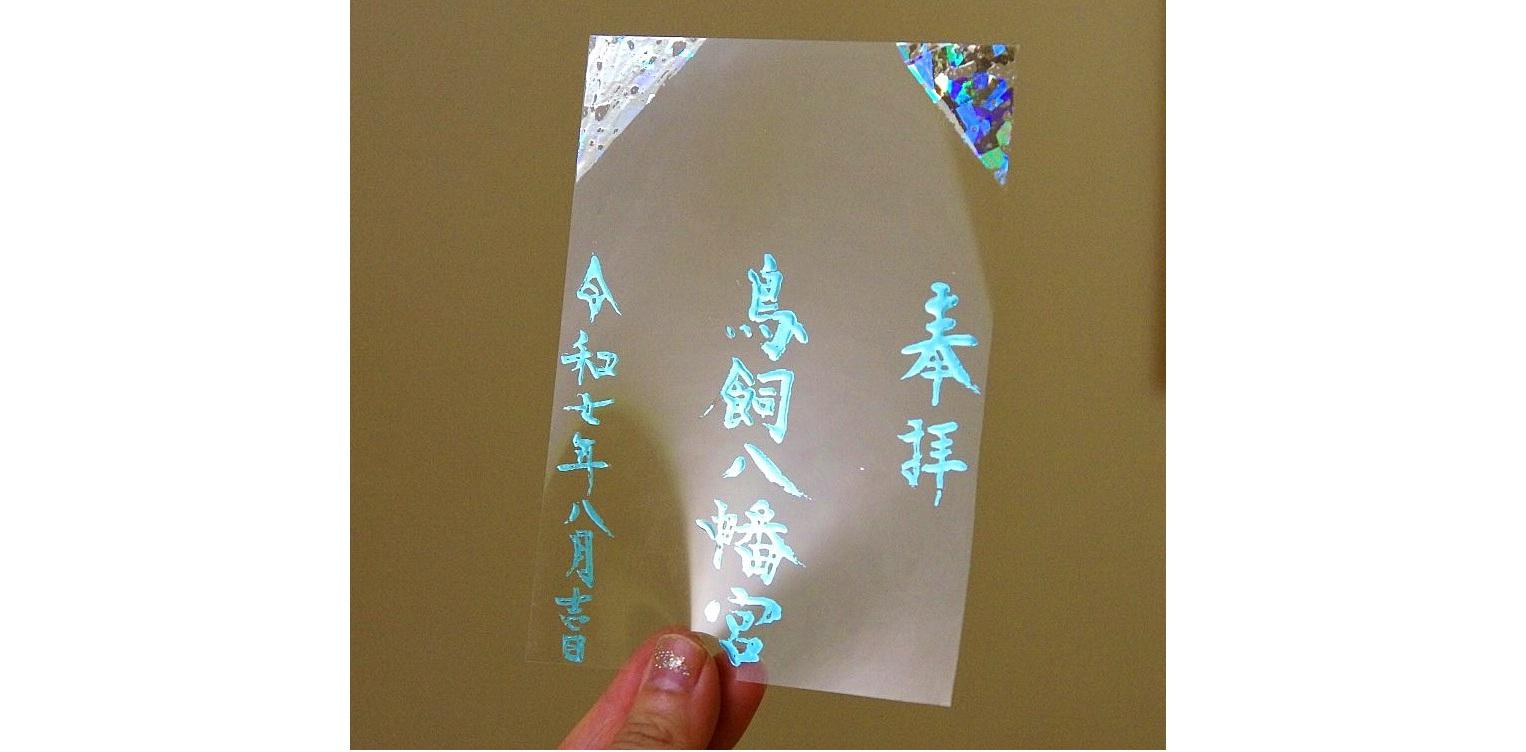 奉拝
鳥飼八幡宮
令和七年八月吉日